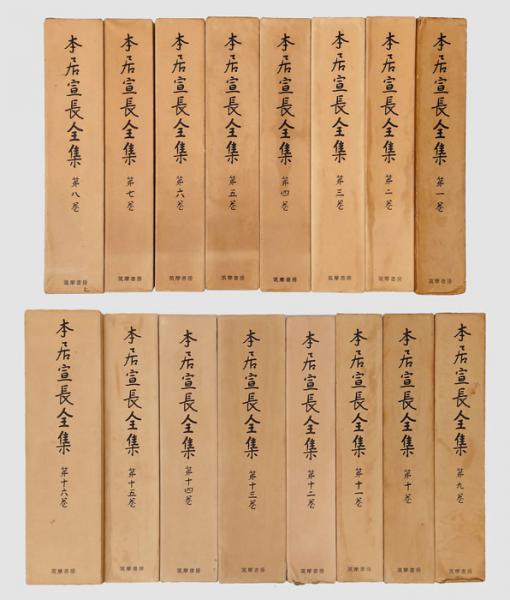 本居宣長全集 第一巻 筑摩書房
本居宣長全集 第二巻 筑摩書房
本居宣長全集 第三巻 筑摩書房
本居宣長全集 第四巻 筑摩書房
本居宣長全集 第五巻 筑摩書房
本居宣長全集 第六巻 筑摩書房
本居宣長全集 第七巻 筑摩書房
本居宣長全集 第八巻 筑摩書房
本居宣長全集 第九巻 筑摩書房
本居宣長全集 第十巻 筑摩書房
本居宣長全集 第十一巻 筑摩書房
本居宣長全集 第十二巻 筑摩書房
本居宣長全集 第十三巻 筑摩書房
本居宣長全集 第十四巻 筑摩書房
本居宣長全集 第十五巻 筑摩書房
本居宣長全集 第十六巻 筑摩書房